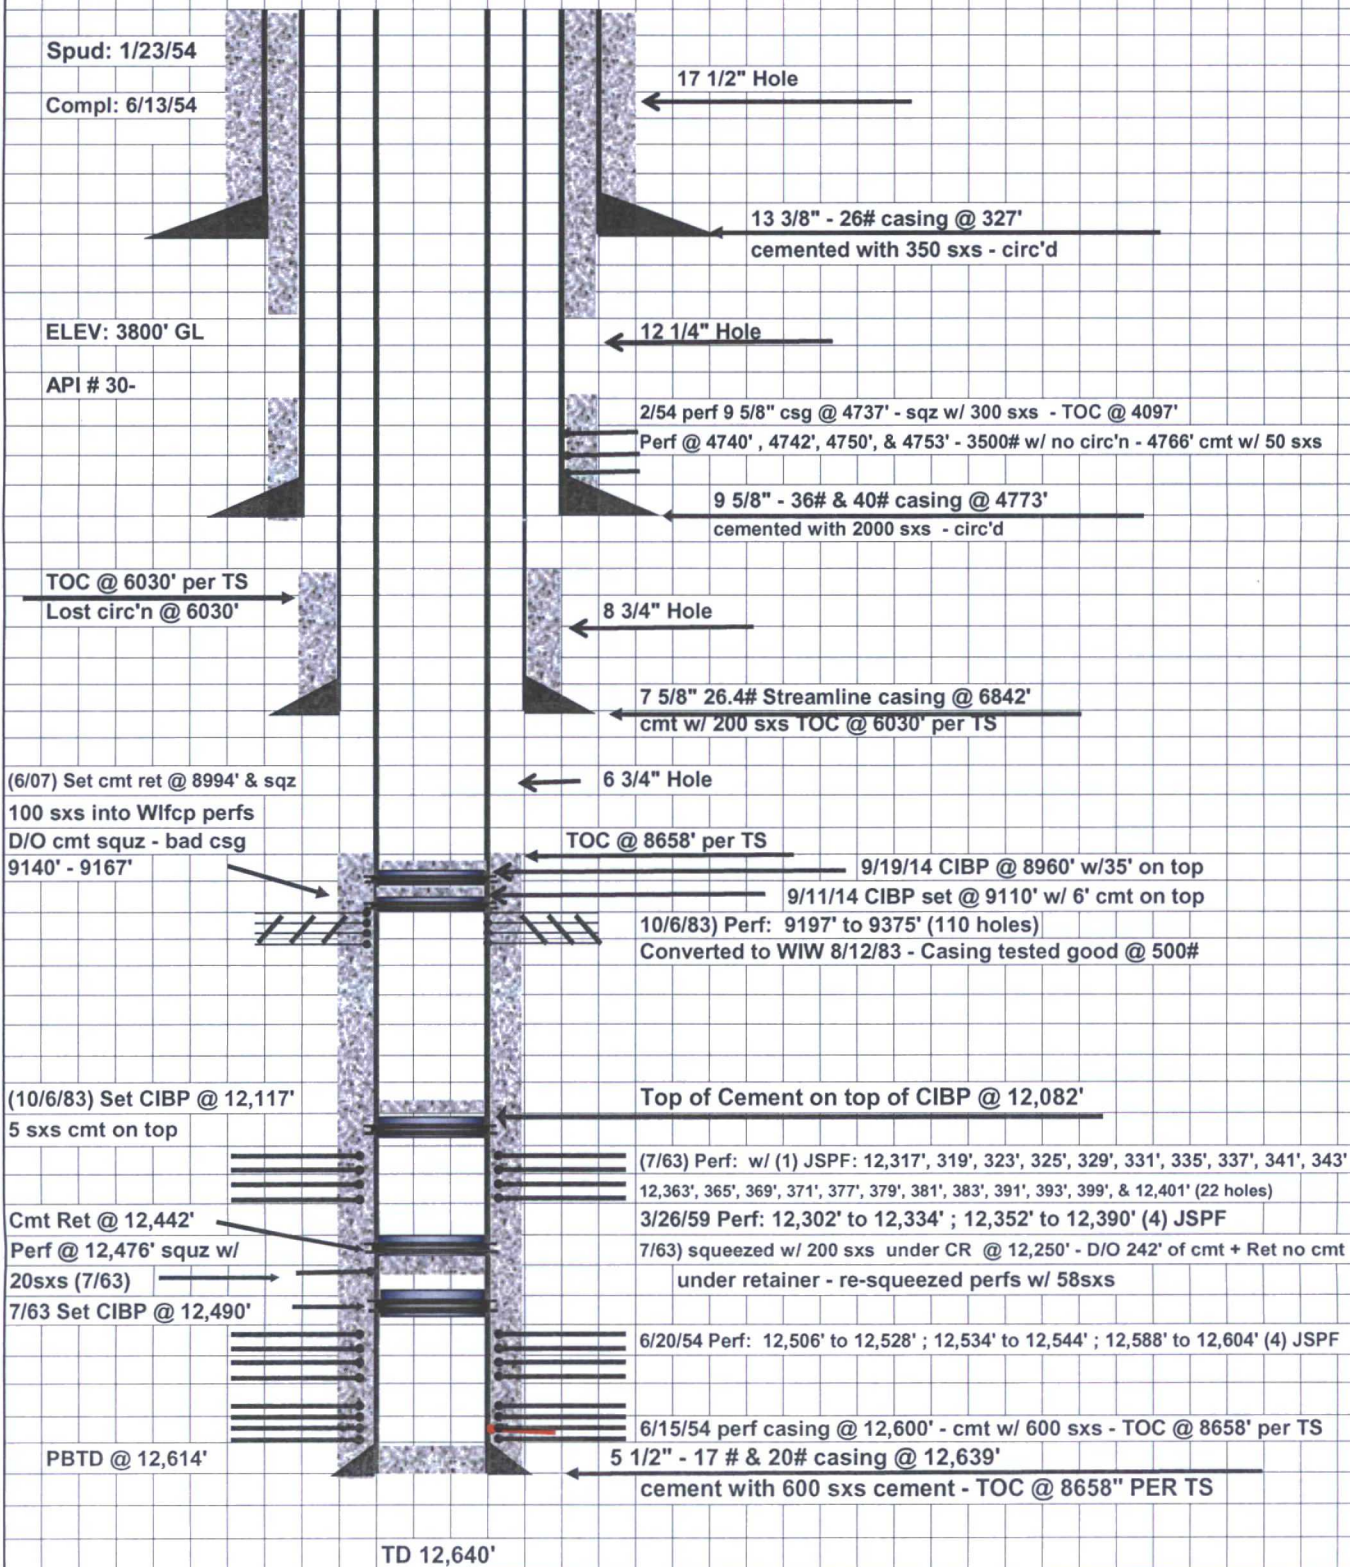 Spud: 1/23/54
17 1/2" Hole
Compl: 6/13/54
13 3/8" - 26# casing @ 327'
cemented with 350 sxs - circ'd
ELEV: 3800' GL
12 1/4" Hole
API # 30-
2/54 perf 9 5/8" csg @ 4737' - sqz w/ 300 sxs - TOC @ 4097'
Perf @ 4740' , 4742', 4750', & 4753' - 3500# w/ no circ'n - 4766' cmt w/ 50 sxs
9 5/8" - 36# & 40# casing @ 4773'
cemented with 2000 sxs - circ'd
TOC @ 6030' per TS
Lost circ'n @ 6030'
8 3/4" Hole
7 5/8" 26.4# Streamline casing @ 6842'
cmt w/ 200 sxs TOC @ 6030' per TS
(6/07) Set cmt ret @ 8994' & sqz
100 sxs into Wlfcp perfs
D/O cmt squz - bad csg
9140' - 9167'
6 3/4" Hole
TOC @ 8658' per TS
9/19/14 CIBP @ 8960' w/35' on top
9/11/14 CIBP set @ 9110' w/ 6' cmt on top
10/6/83) Perf: 9197' to 9375' (110 holes)
Converted to WIW 8/12/83 - Casing tested good @ 500#
(10/6/83) Set CIBP @ 12,117'
5 sxs cmt on top
Top of Cement on top of CIBP @ 12,082'
(7/63) Perf: w/ (1) JSPF: 12,317', 319', 323', 325', 329', 331', 335', 337', 341', 343'
12,363', 365', 369', 371', 377', 379', 381', 383', 391', 393', 399', & 12,401' (22 holes)
Cmt Ret @ 12,442'
3/26/59 Perf: 12,302' to 12,334' ; 12,352' to 12,390' (4) JSPF
Perf @ 12,476' squz w/
20sxs (7/63)
7/63) squeezed w/ 200 sxs under CR @ 12,250' - D/O 242' of cmt + Ret no cmt
under retainer - re-squeezed perfs w/ 58sxs
7/63 Set CIBP @ 12,490'
6/20/54 Perf: 12,506' to 12,528' ; 12,534' to 12,544' ; 12,588' to 12,604' (4) JSPF
6/15/54 perf casing @ 12,600' - cmt w/ 600 sxs - TOC @ 8658' per TS
PBTD @ 12,614'
5 1/2" - 17 # & 20# casing @ 12,639'
cement with 600 sxs cement - TOC @ 8658" PER TS
TD 12,640'